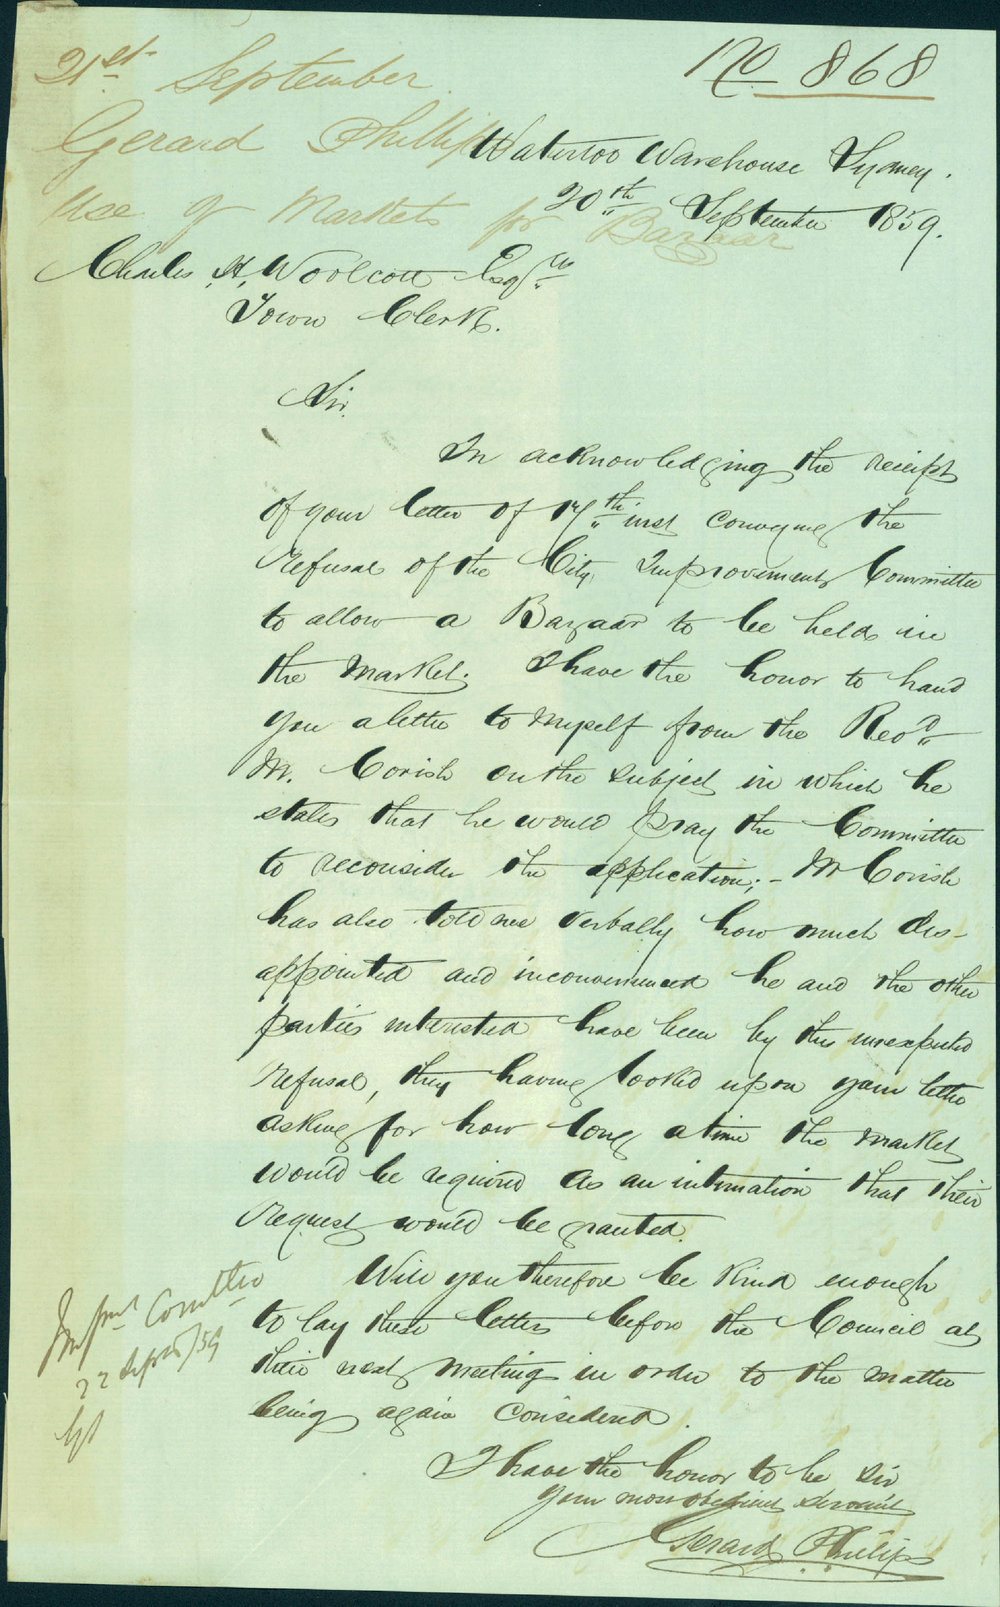 No 868
21st September
Gerard Phillips
Use of Markets for Bazaar
Waterloo Warehouse Sydney.
20th September 1859.
Charles H. Woolcott Esqre
Town Clerk.
Sir
In acknowledging the receipt
of your letter of 17th inst conveying the
refusal of the City Improvements Committee
to allow a Bazaar to be held in
the Market. I have the honor to hand
you a letter to myself from the Revd
M. Corish on the subject in which he
states that he would pray the Committee
to reconsider the application; - Mr Corish
has also told me verbally how much dis-
appointed and inconvenienced he and the other
parties interested have been by this unexpected
refusal, they having looked upon your letter
asking for how long a time the market
would be required as an intimation that their
request would be granted.
Will you therefore be kind enough
to lay these letters before the Council at
their next meeting in order to the matter
being again considered.
I have the honor to be Sir
your most obedient servant
Gerard Phillips
Impmt Comttee
22 Septr/59